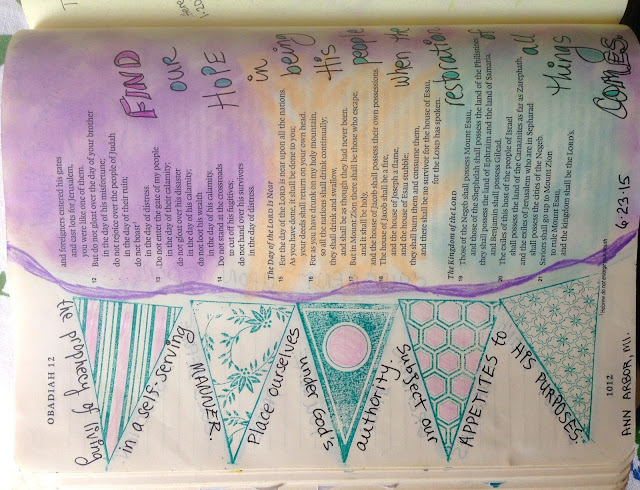 OBADIAH 12
1012
and foreigners entered his gates
and cast lots for Jerusalem,
you were like one of them.
12 But do not gloat over the day of your brother
in the day of his misfortune;
do not rejoice over the people of Judah
in the day of their ruin;
do not boast
in the day of distress.
13 Do not enter the gate of my people
in the day of their calamity;
do not gloat over his disaster
in the day of his calamity;
do not loot his wealth
in the day of his calamity.
14 Do not stand at the crossroads
to cut off his fugitives;
do not hand over his survivors
in the day of distress.
The Day of the LORD Is Near
15 For the day of the LORD is near upon all the nations.
As you have done, it shall be done to you;
your deeds shall return on your own head.
16 For as you have drunk on my holy mountain,
so all the nations shall drink continually;
they shall drink and swallow,
and shall be as though they had never been.
17 But in Mount Zion there shall be those who escape,
and it shall be holy,
and the house of Jacob shall possess their own possessions.
18 The house of Jacob shall be a fire,
and the house of Joseph a flame,
and the house of Esau stubble;
they shall burn them and consume them,
and there shall be no survivor for the house of Esau,
for the LORD has spoken.
The Kingdom of the LORD
19 Those of the Negeb shall possess Mount Esau,
and those of the Shephelah shall possess the land of the Philistines;
they shall possess the land of Ephraim and the land of Samaria,
and Benjamin shall possess Gilead.
20 The exiles of this host of the people of Israel
shall possess the land of the Canaanites as far as Zarephath,
and the exiles of Jerusalem who are in Sepharad
shall possess the cities of the Negeb.
21 Saviors shall go up to Mount Zion
to rule Mount Esau,
and the kingdom shall be the LORD's.
FIND
OUR
HOPE
in
being
His
people
when the
restoration
of
all
things
COMES.
6-23-15
the prophecy of living
in a self-serving
MANNER.
Place ourselves
under God's
authority.
Subject our
APPETITES to
HIS PURPOSES.
ANN ARBOR, MI.